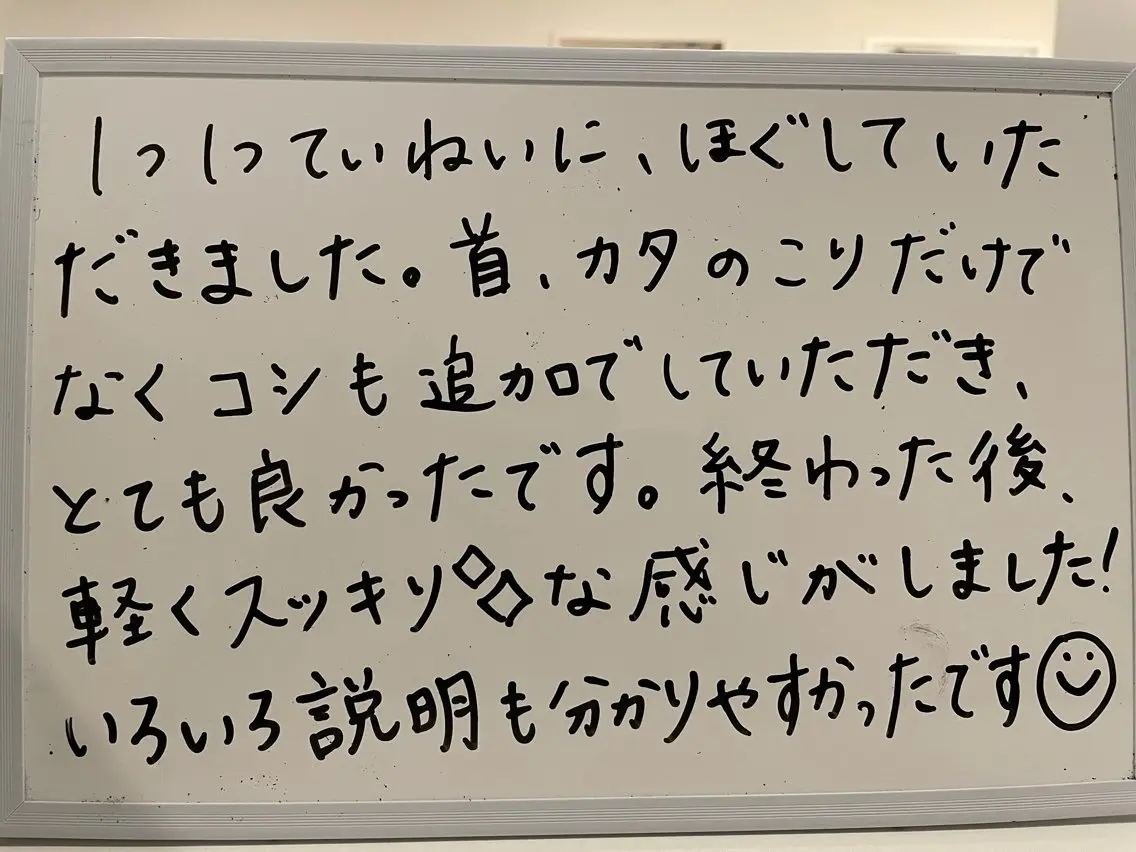 1つ1つていねいに、ほぐしていた
だきました。首、カタのこりだけで
なくコシも追加でしていただき、
とても良かったです。終わった後、
軽くスッキリな感じがしました!
いろいろ説明も分かりやすかったです